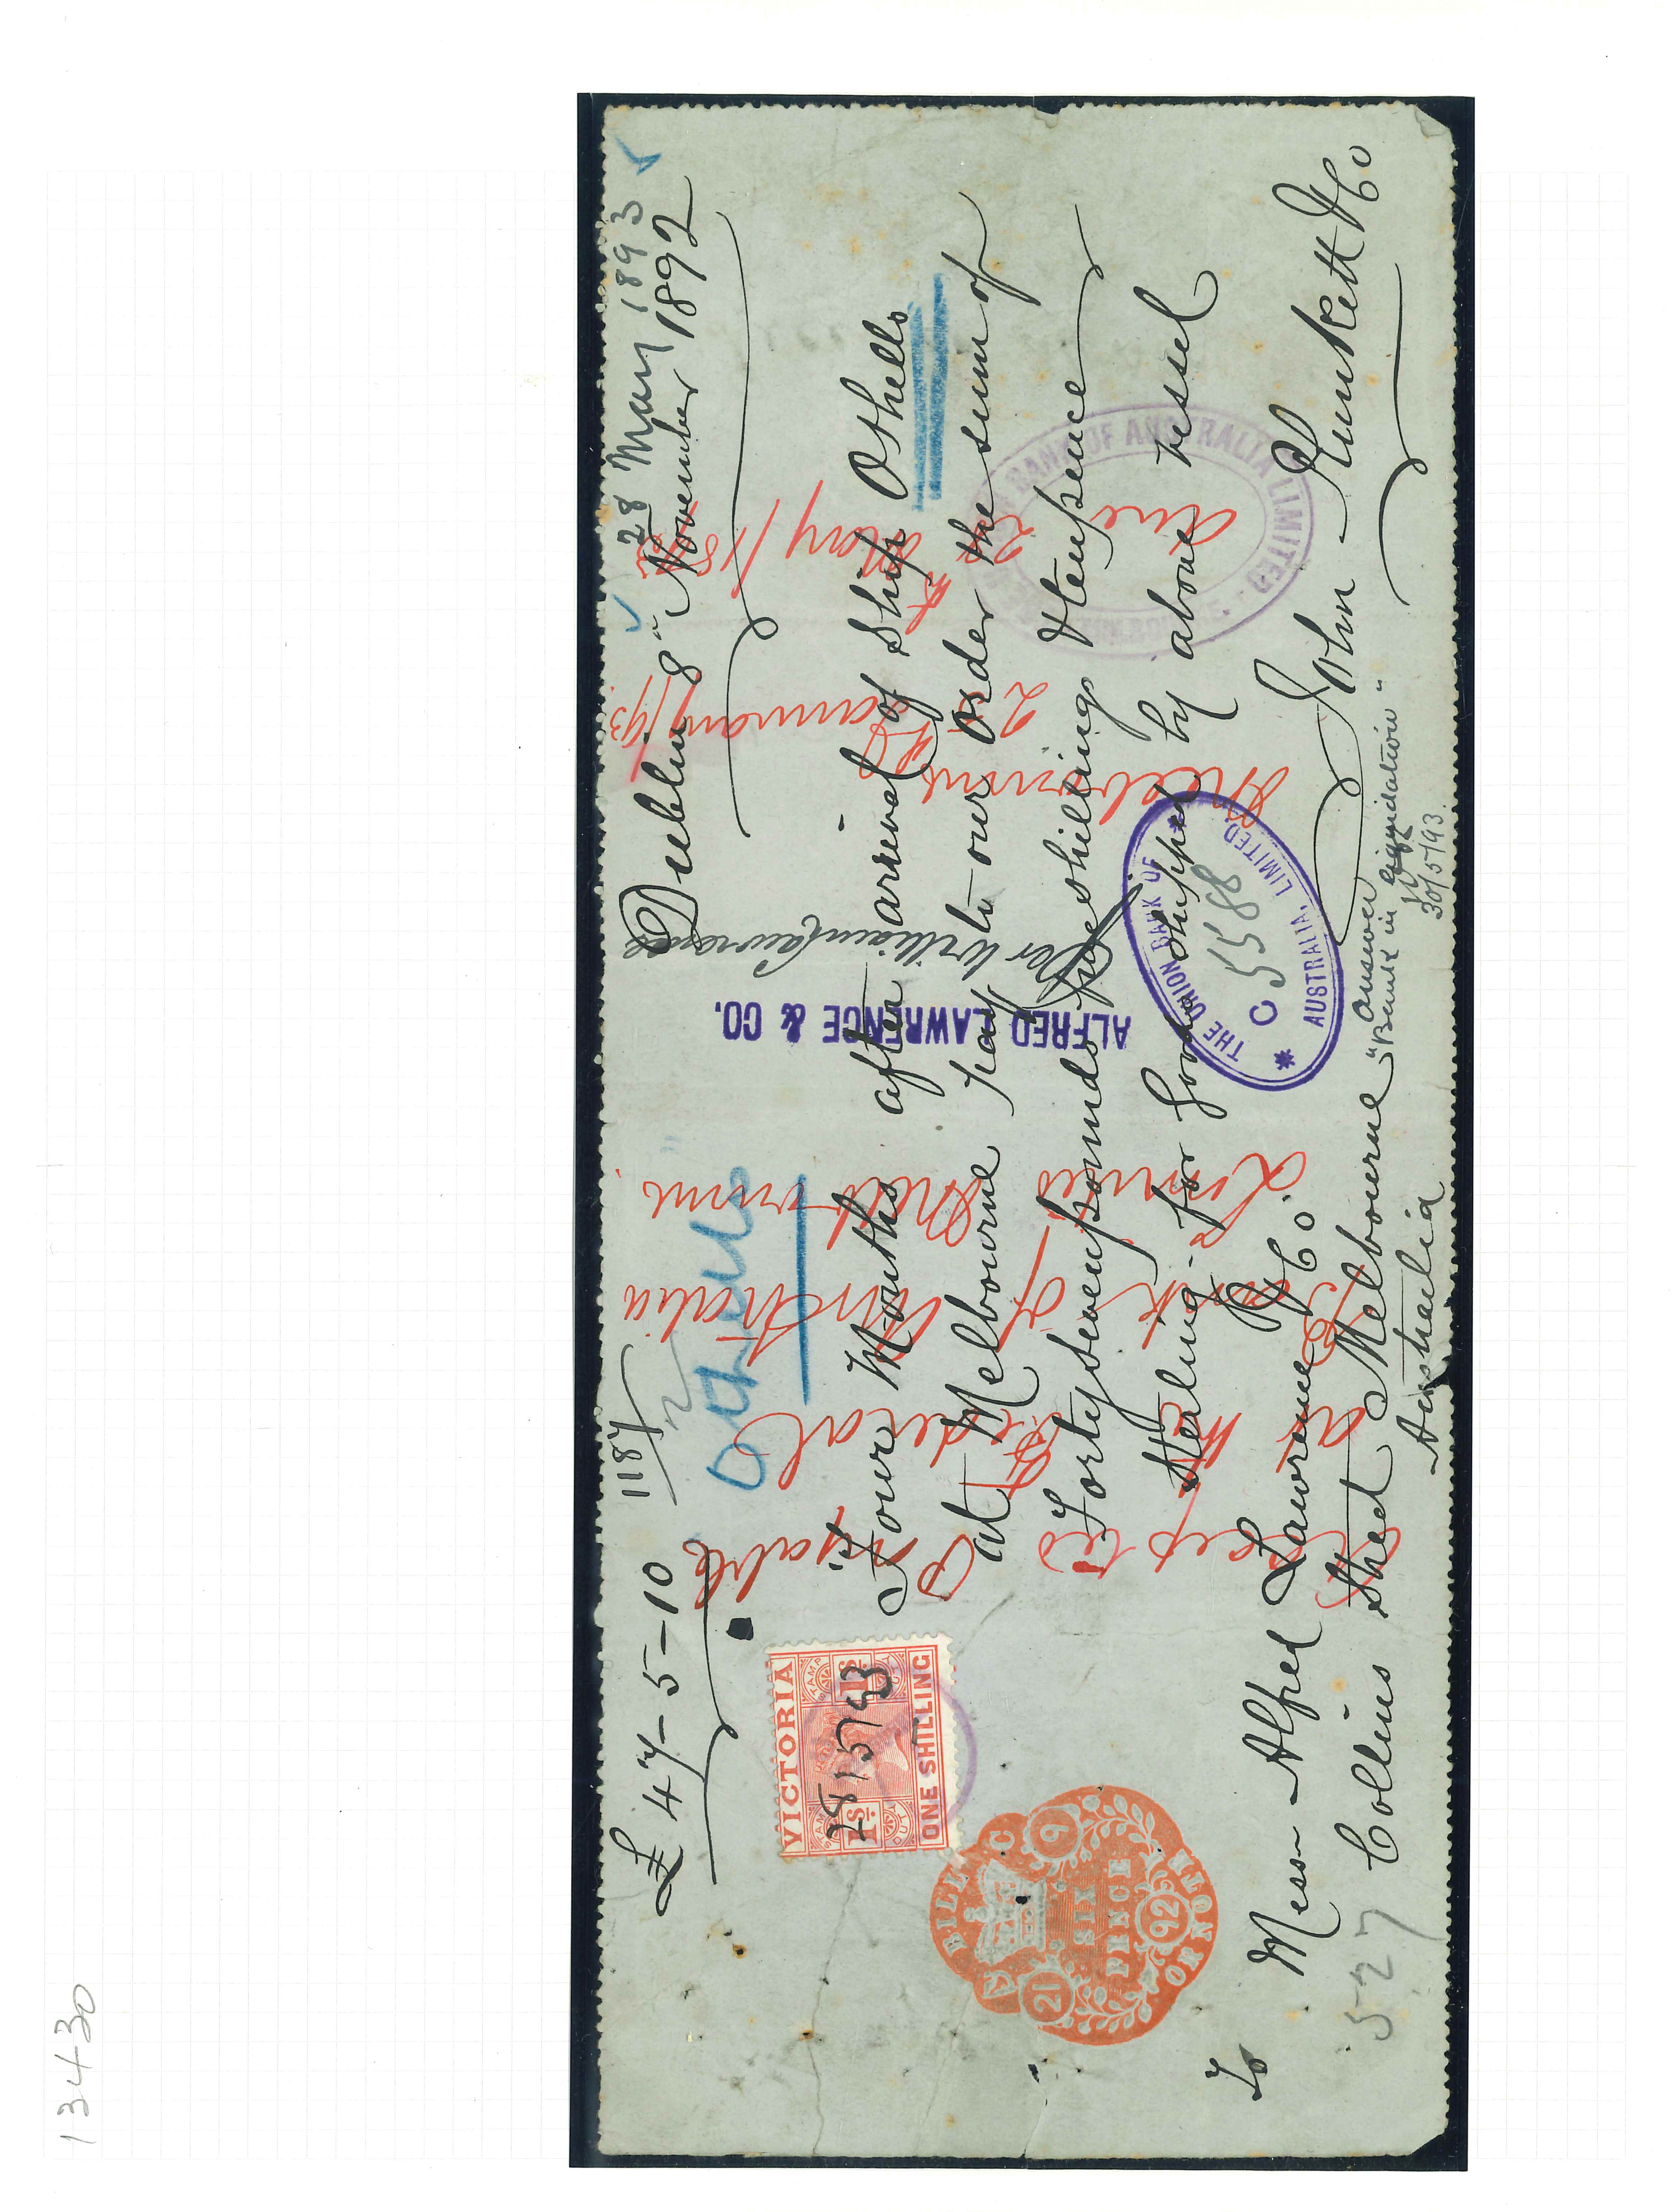 13430
28 May 1893
£47-5-10
1187
Dublin 8" November 1892
Othello
Four Months after arrival of Ship Othello
at Melbourne pay to our order the sum of
Fortyseven pounds five shillings & tenpence
Sterling - for Goods shipped by above vessel
To Mess Alfred Lawrence & Co. John Plunkett & Co
Collins Street Melbourne
Australia
527
Answer
"Bank in liquidation"
30/5/93
VICTORIA
STAMP DUTY
1s. 1s.
ONE SHILLING
28/5/93
BILL OR NOTE
SIX
PENCE
21 9 92
C
Accepted
Payable
at the Federal
Bank of Australia
Limited Melbourne
ALFRED LAWRENCE & CO.
William Lawrence
Melbourne
25 January /93
Due 28 May /93
THE UNION BANK OF
AUSTRALIA, LIMITED.
C 5588
BANK OF AUSTRALIA LIMITED